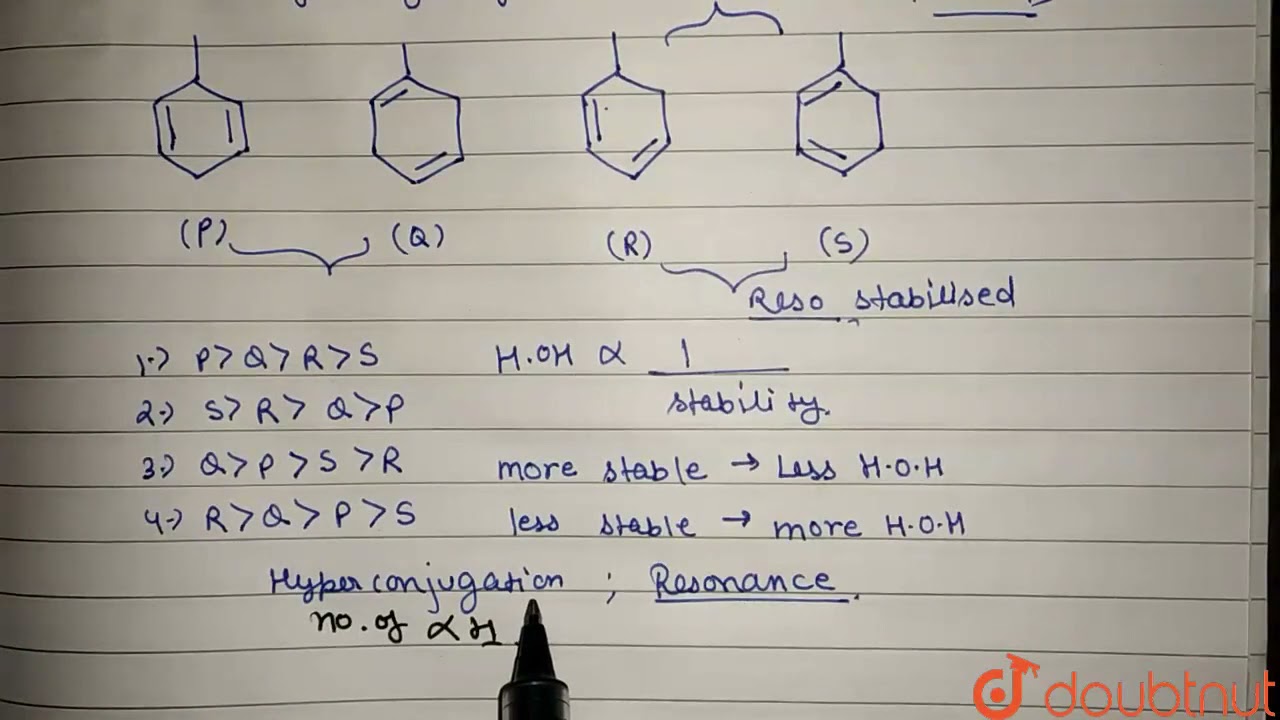 (P) (Q) (R) (S)
Reso stabilised
1.) P > Q > R > S
2.) S > R > Q > P
3.) Q > P > S > R
4.) R > Q > P > S
H.OH ∝ 1
stability.
more stable → Less H.O.H
less stable → more H.O.H
Hyperconjugation ; Resonance.
no. of ∝ H
doubtnut